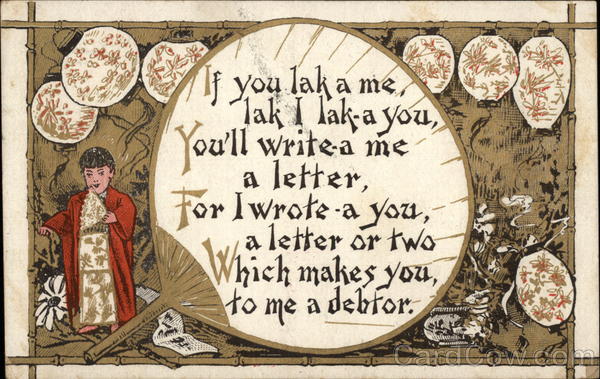 If you lak a me,
lak I lak-a you,
You'll write-a me
a letter,
For I wrote-a you,
a letter or two
Which makes you,
to me a debtor.
CardCow.com